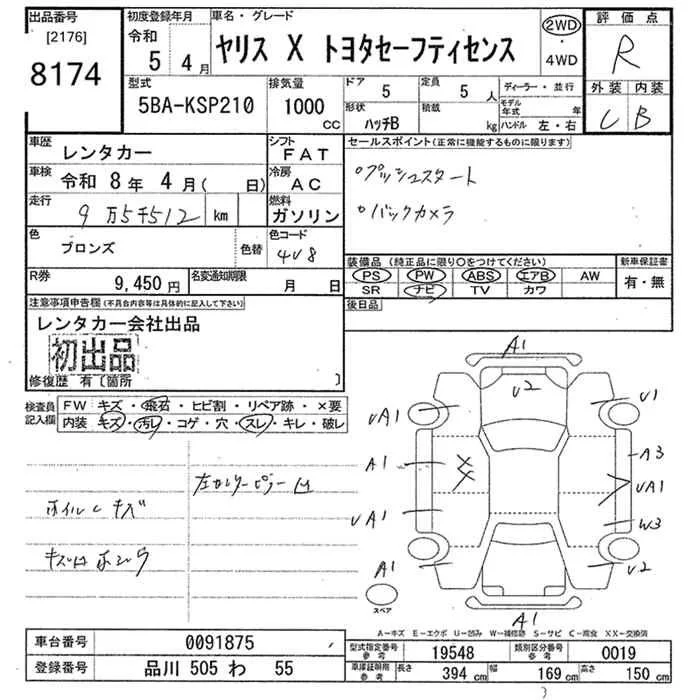 出品番号
[2176]
8174
初度登録年月
令和 5年 4月
車名・グレード
ヤリス X トヨタセーフティセンス
2WD
・
4WD
評価点
R
外装 内装
C B
型式
5BA-KSP210
排気量
1000 cc
ドア 5
形状 ハッチB
定員 5 人
積載 kg
ディーラー・並行
モデル年式 年
ハンドル 左・右
車歴 レンタカー
シフト FAT
車検 令和 8年 4月( 日)
冷房 AC
走行 9万5千512 km
燃料 ガソリン
色 ブロンズ
色替
色コード 4V8
R券 9,450円
名変通知期限 月 日
セールスポイント(正常に機能するものに限ります)
○プッシュスタート
○バックカメラ
装備品(純正品に限り○をつけてください)
PS PW ABS エアB AW
SR ナビ TV カワ
新車保証書
有・無
後日品
注意事項申告欄(不具合内容等は具体的に記入して下さい)
レンタカー会社出品
初出品
修復歴 有〔箇所 〕
検査員記入欄
FW キズ・飛石・ヒビ割・リペア跡・×要
内装 キズ・汚レ・コゲ・穴・スレ・キレ・破レ
左センターピラー凹
ホイルCキズ
A1
U2
UA1
U1
A1
A3
UA1
UA1
W3
A1
U2
スペア
A1
A-キズ E-エクボ U-凹み W-補修跡 S-サビ C-腐食 XX-交換済
車台番号 0091875
登録番号 品川 505 わ 55
型式指定番号 参考 19548
類別区分番号 参考 0019
車庫証明用 参考 長さ 394 cm 幅 169 cm 高さ 150 cm